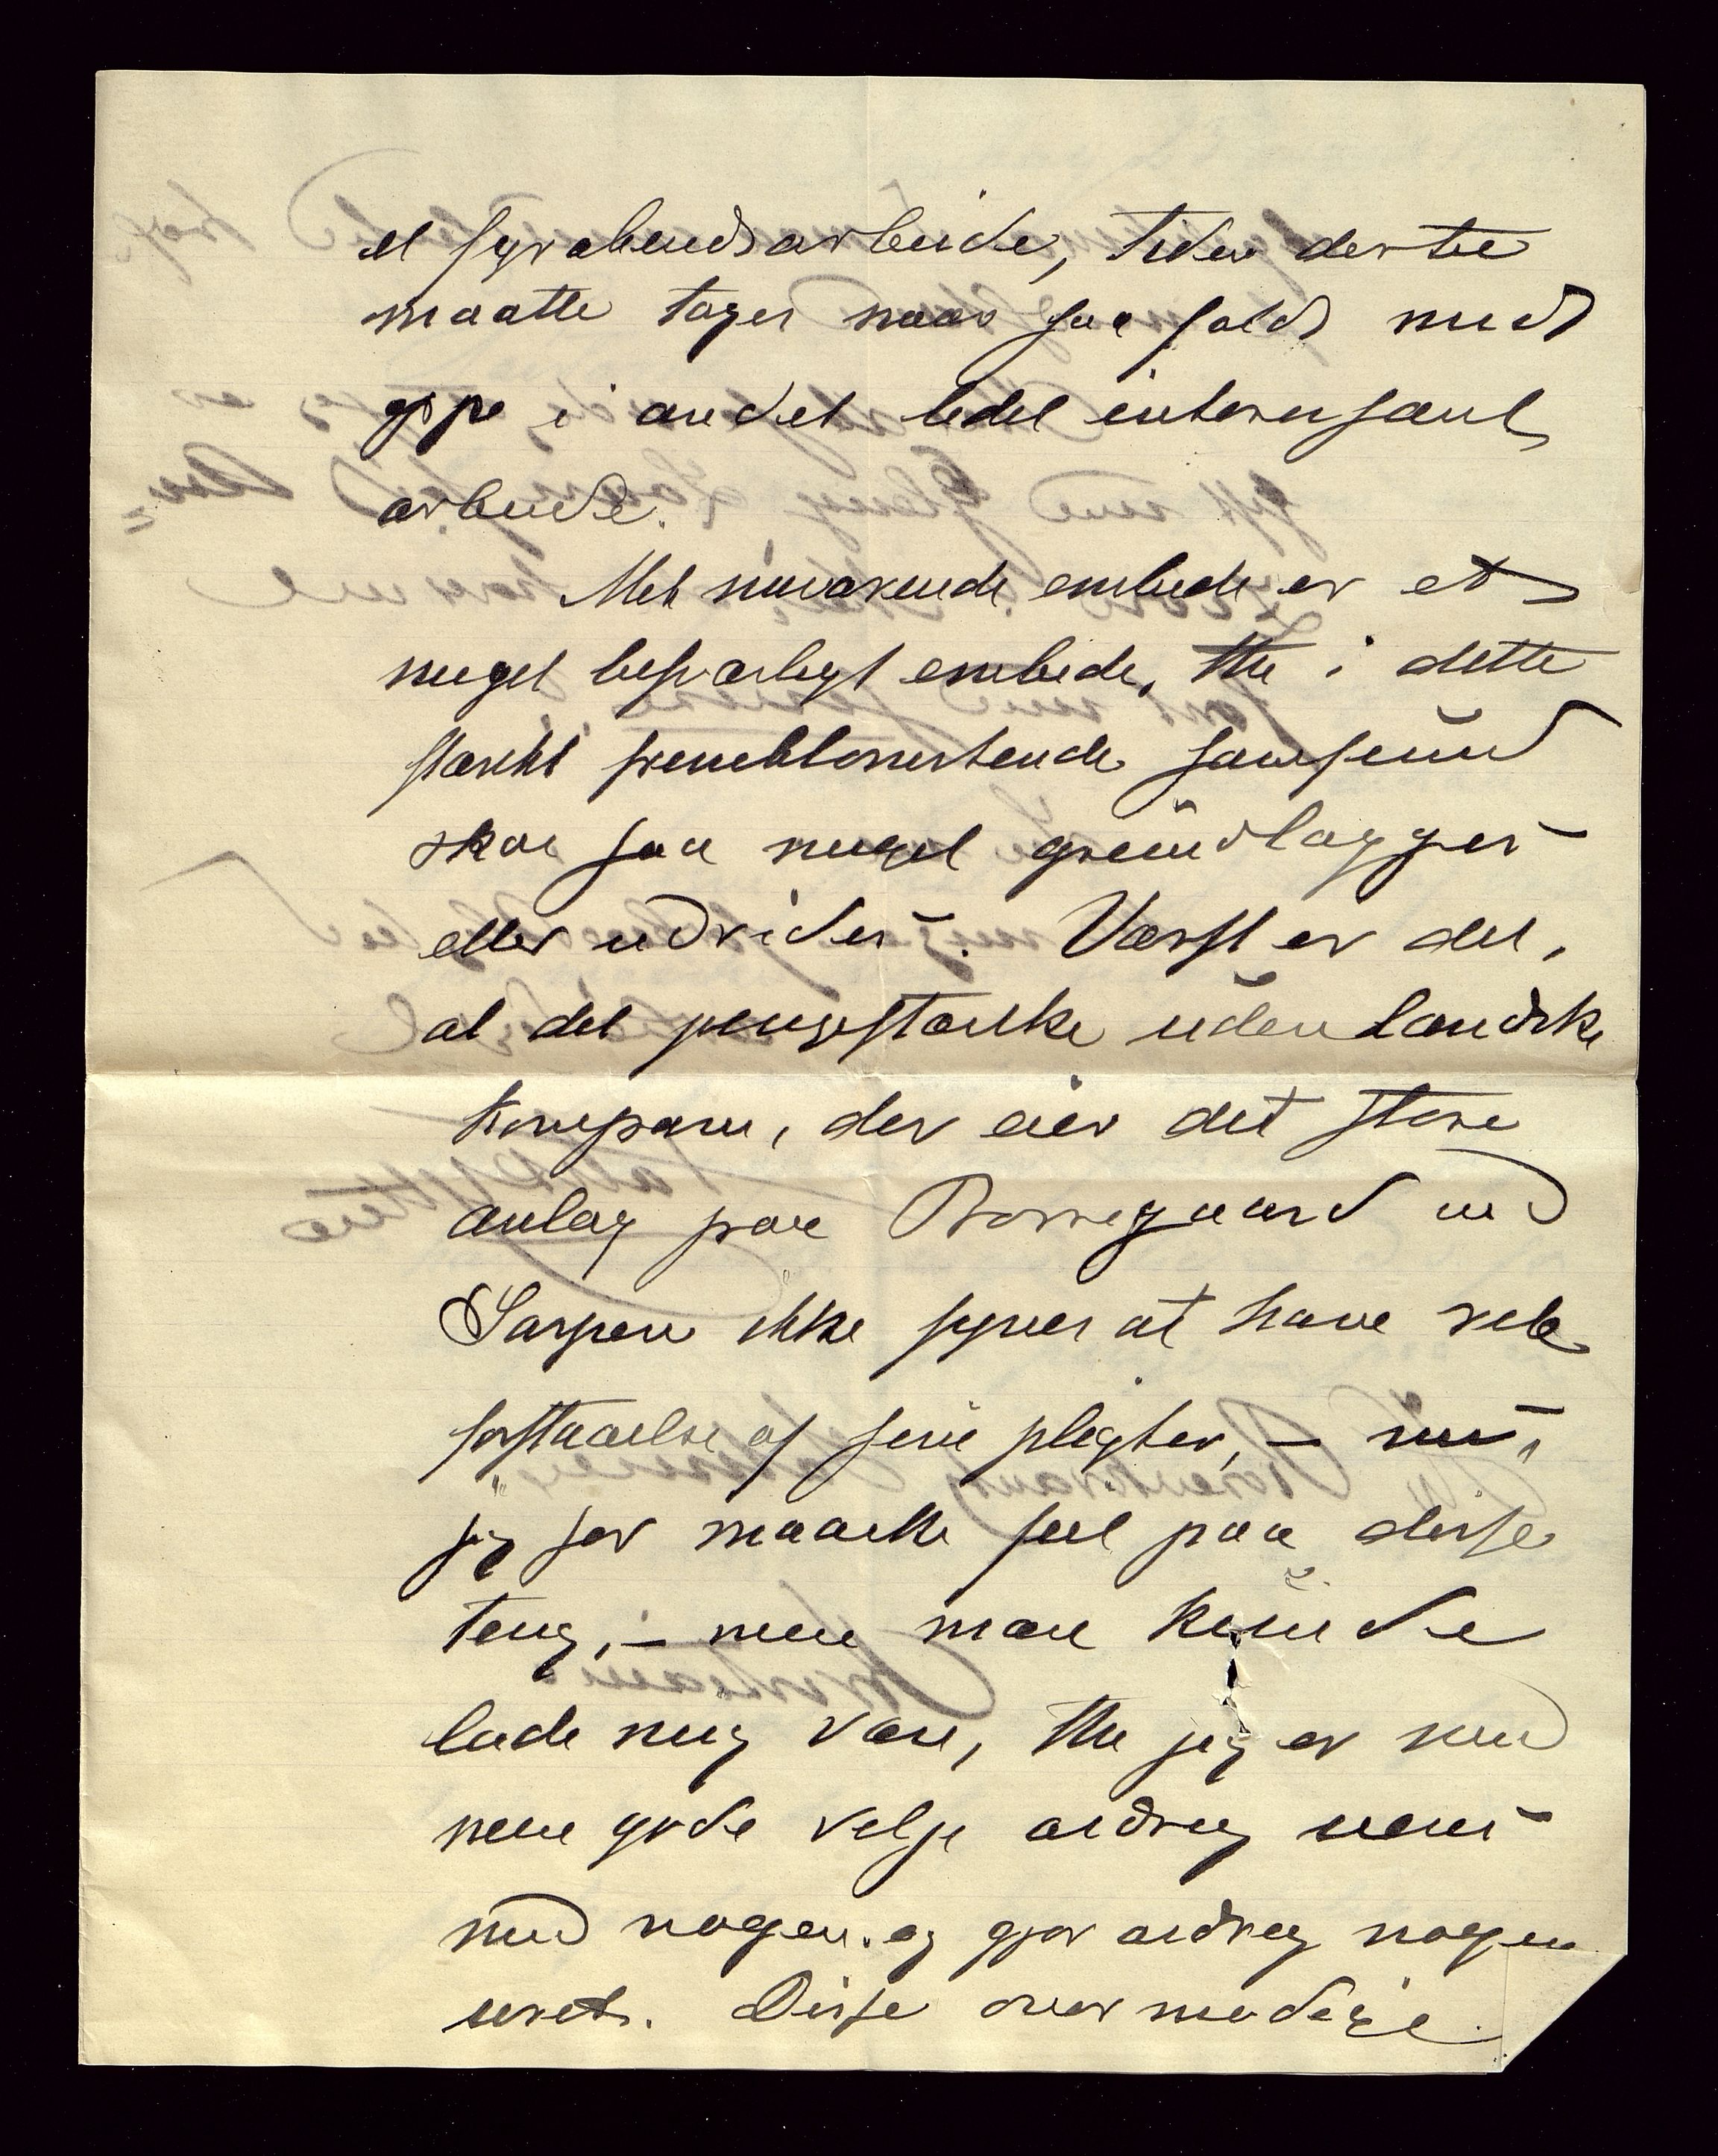 et fyrabendsarbeide, tiden dertil
maatte tages naar saa faldt med
oppe i andet ledet interessant
arbeide.
Mit nuværende embede er et
meget besværligt embede, thi i dette
stærkt fremblomstrende samfund
skal saa meget grundlægges
eller udvides. Værst er det,
at det pengestærke udenlandske
kompani, der eier det store
anlæg paa Borregaard ved
Sarpen ikke synes at have ret
forstaaelse af sine pligter, –
jeg ser maaske feil paa disse
ting, – men man kunde
lade mig være, thi jeg er med
min gode vilje aldrig uens
med nogen og gjør aldrig nogen
uret. Disse overmodige